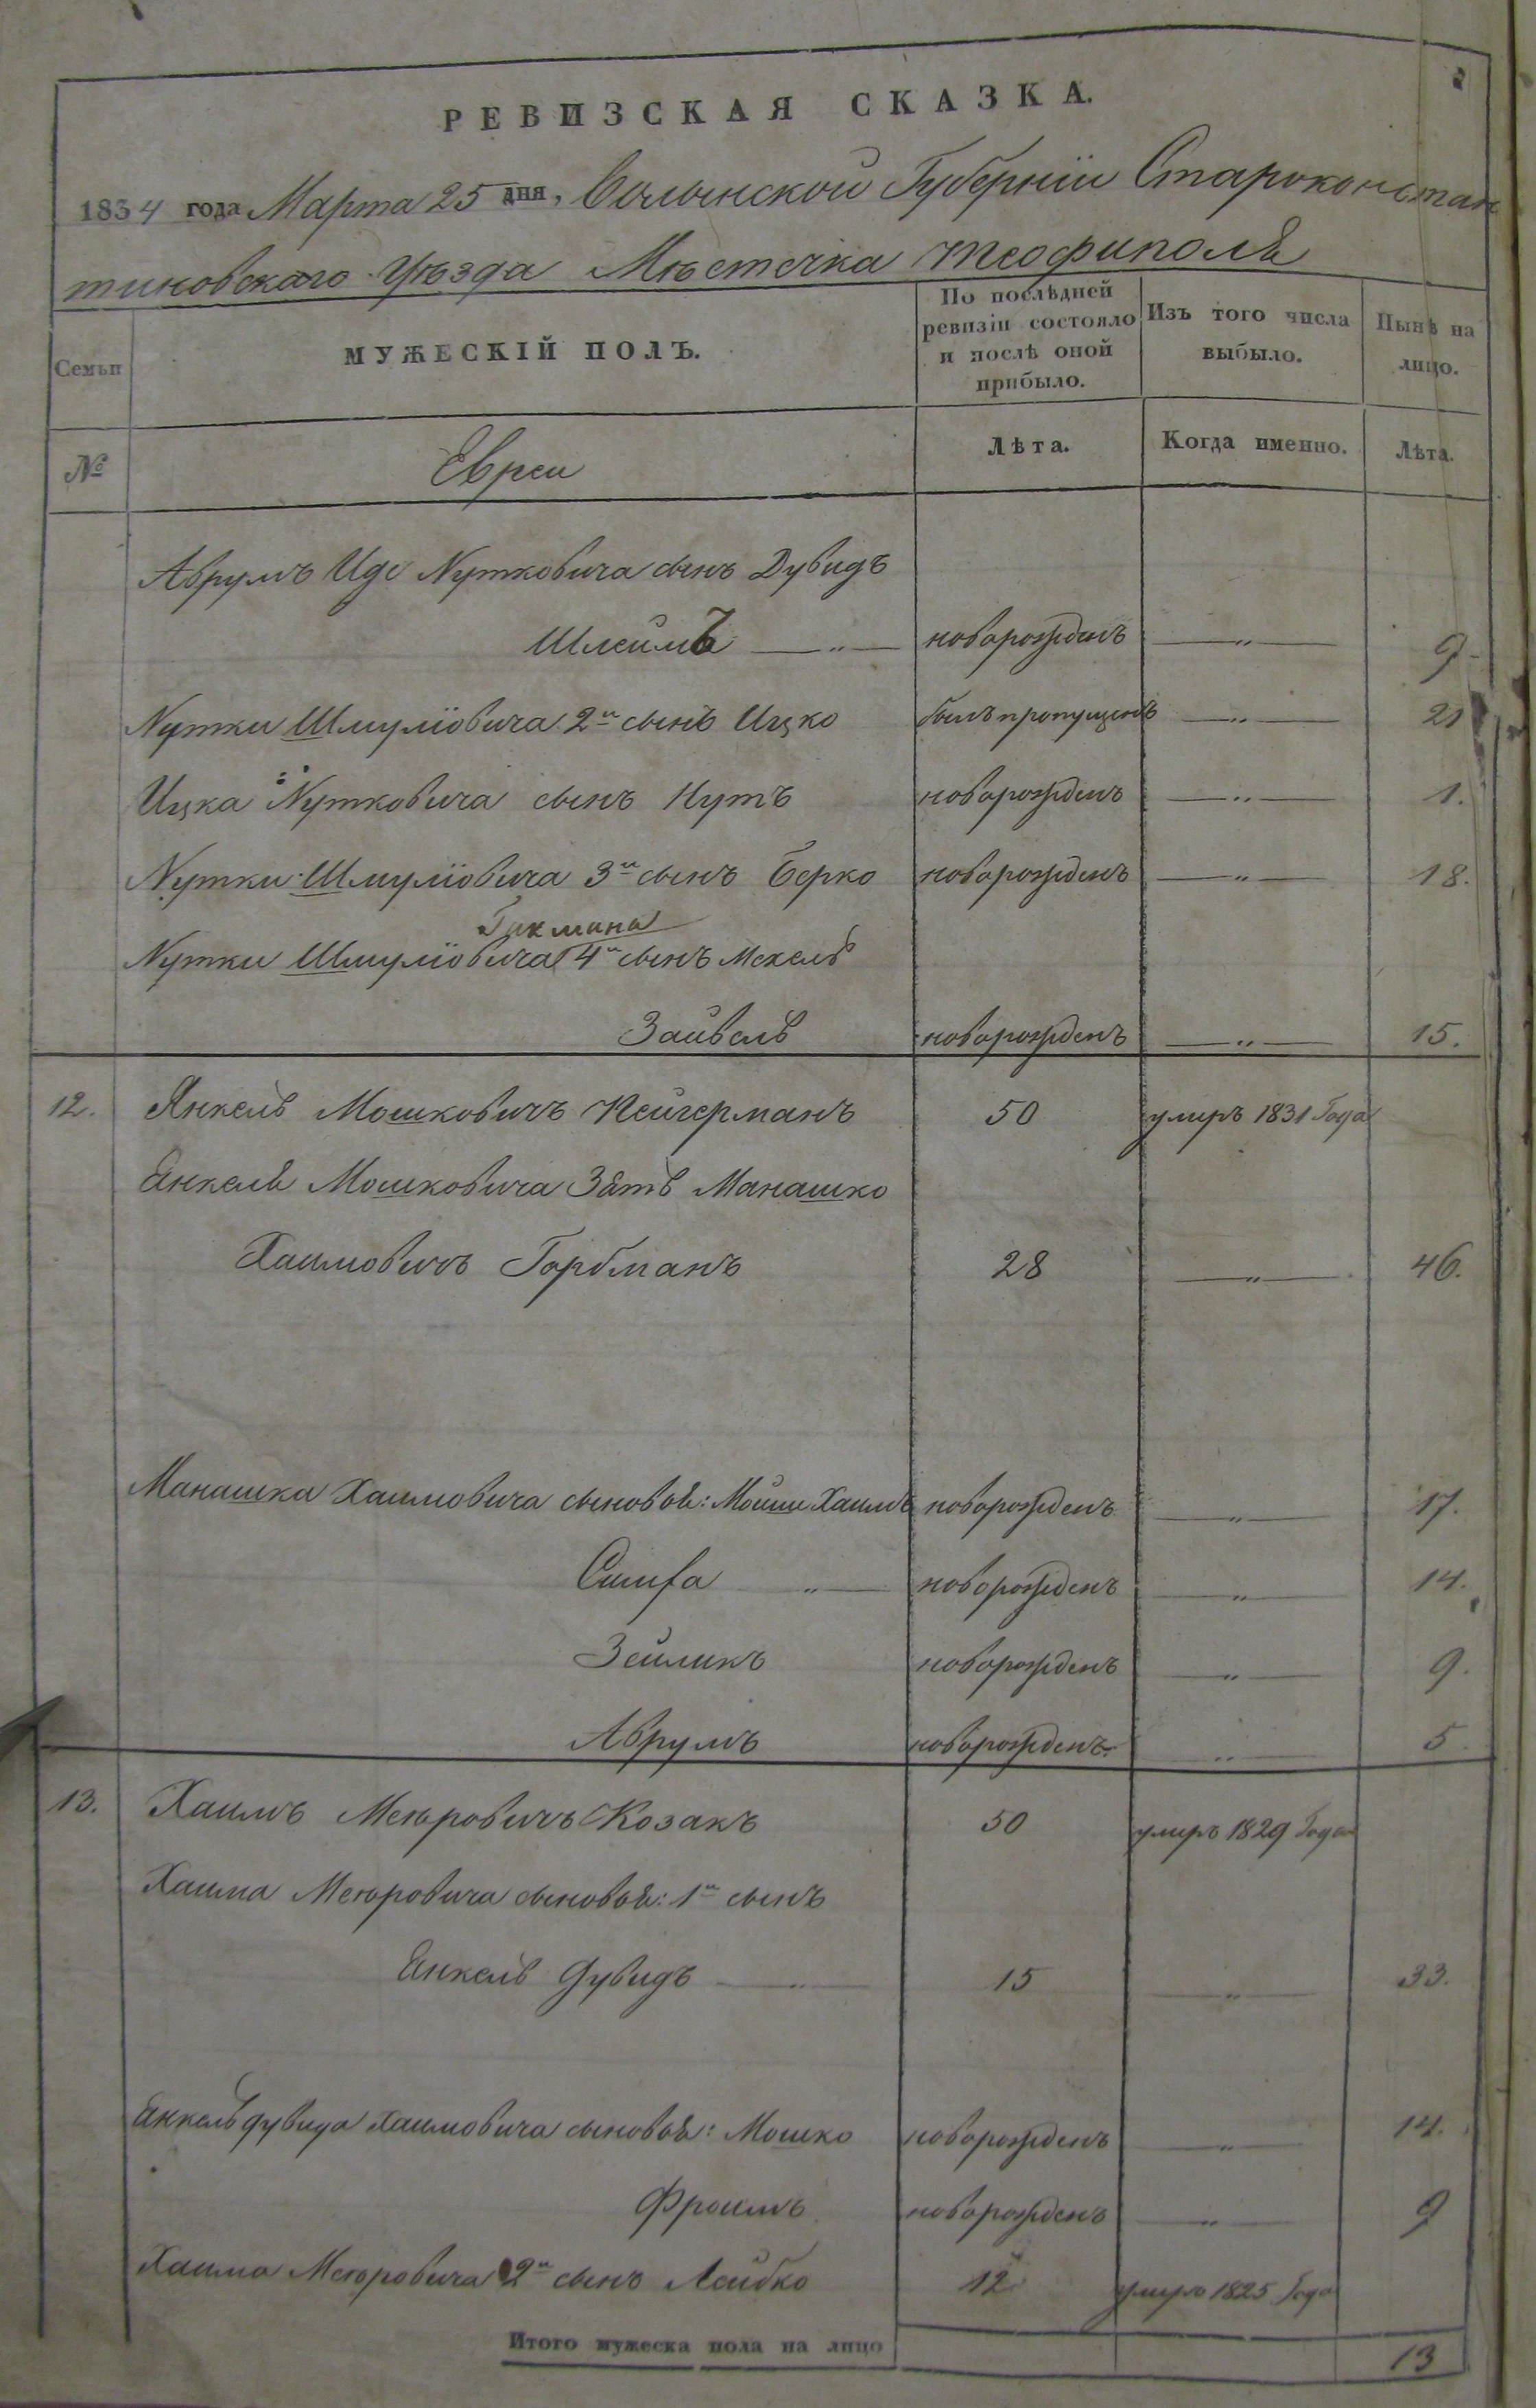 РЕВИЗСКАЯ СКАЗКА.
1834 года Марта 25 дня, Волынской Губерніи Староконстан
тиновскаго Уѣзда Мѣстечка Теофиполя
Семьи
МУЖЕСКІЙ ПОЛЪ.
По послѣдней ревизіи состояло и послѣ оной прибыло.
Изъ того числа выбыло.
Нынѣ на лицо.
№ Евреи Лѣта. Когда именно. Лѣта.
Аврумъ Иде Нутковича сынъ Дувидъ
Шлеимъ —„— новорожденъ —„— 9
Нутки Шмуліовича 2й сынъ Ицко былъ пропущенъ —„— 21
Ицка Нутковича сынъ Нутъ новорожденъ —„— 1.
Нутки Шмуліовича 3й сынъ Берко новорожденъ —„— 18.
Нутки Шмуліовича 4й сынъ Мехель
Зайвель новорожденъ —„— 15.
12. Янкель Мошковичъ Кейгерманъ 50 умиръ 1831 Года
Енкеля Мошковича Зять Манашко
Хаимовичъ Горбманъ 28 —„— 46.
Манашка Хаимовича сыновья: Мойши Хаимъ новорожденъ —„— 17.
Симха „— новорожденъ —„— 14.
Зейликъ новорожденъ —„— 9.
Аврумъ новорожденъ —„— 5
13. Хаимъ Меюровичъ Козакъ 50 умиръ 1829 Года
Хаима Меюровича сыновья: 1й сынъ
Енкель Дувидъ —„— 15 —„— 33.
Енкель Дувида Хаимовича сыновья: Мошко новорожденъ —„— 14.
Фроимъ новорожденъ —„— 9
Хаима Меюровича 2й сынъ Лейбко 12 умиръ 1825 Года
Итого мужеска пола на лицо 13